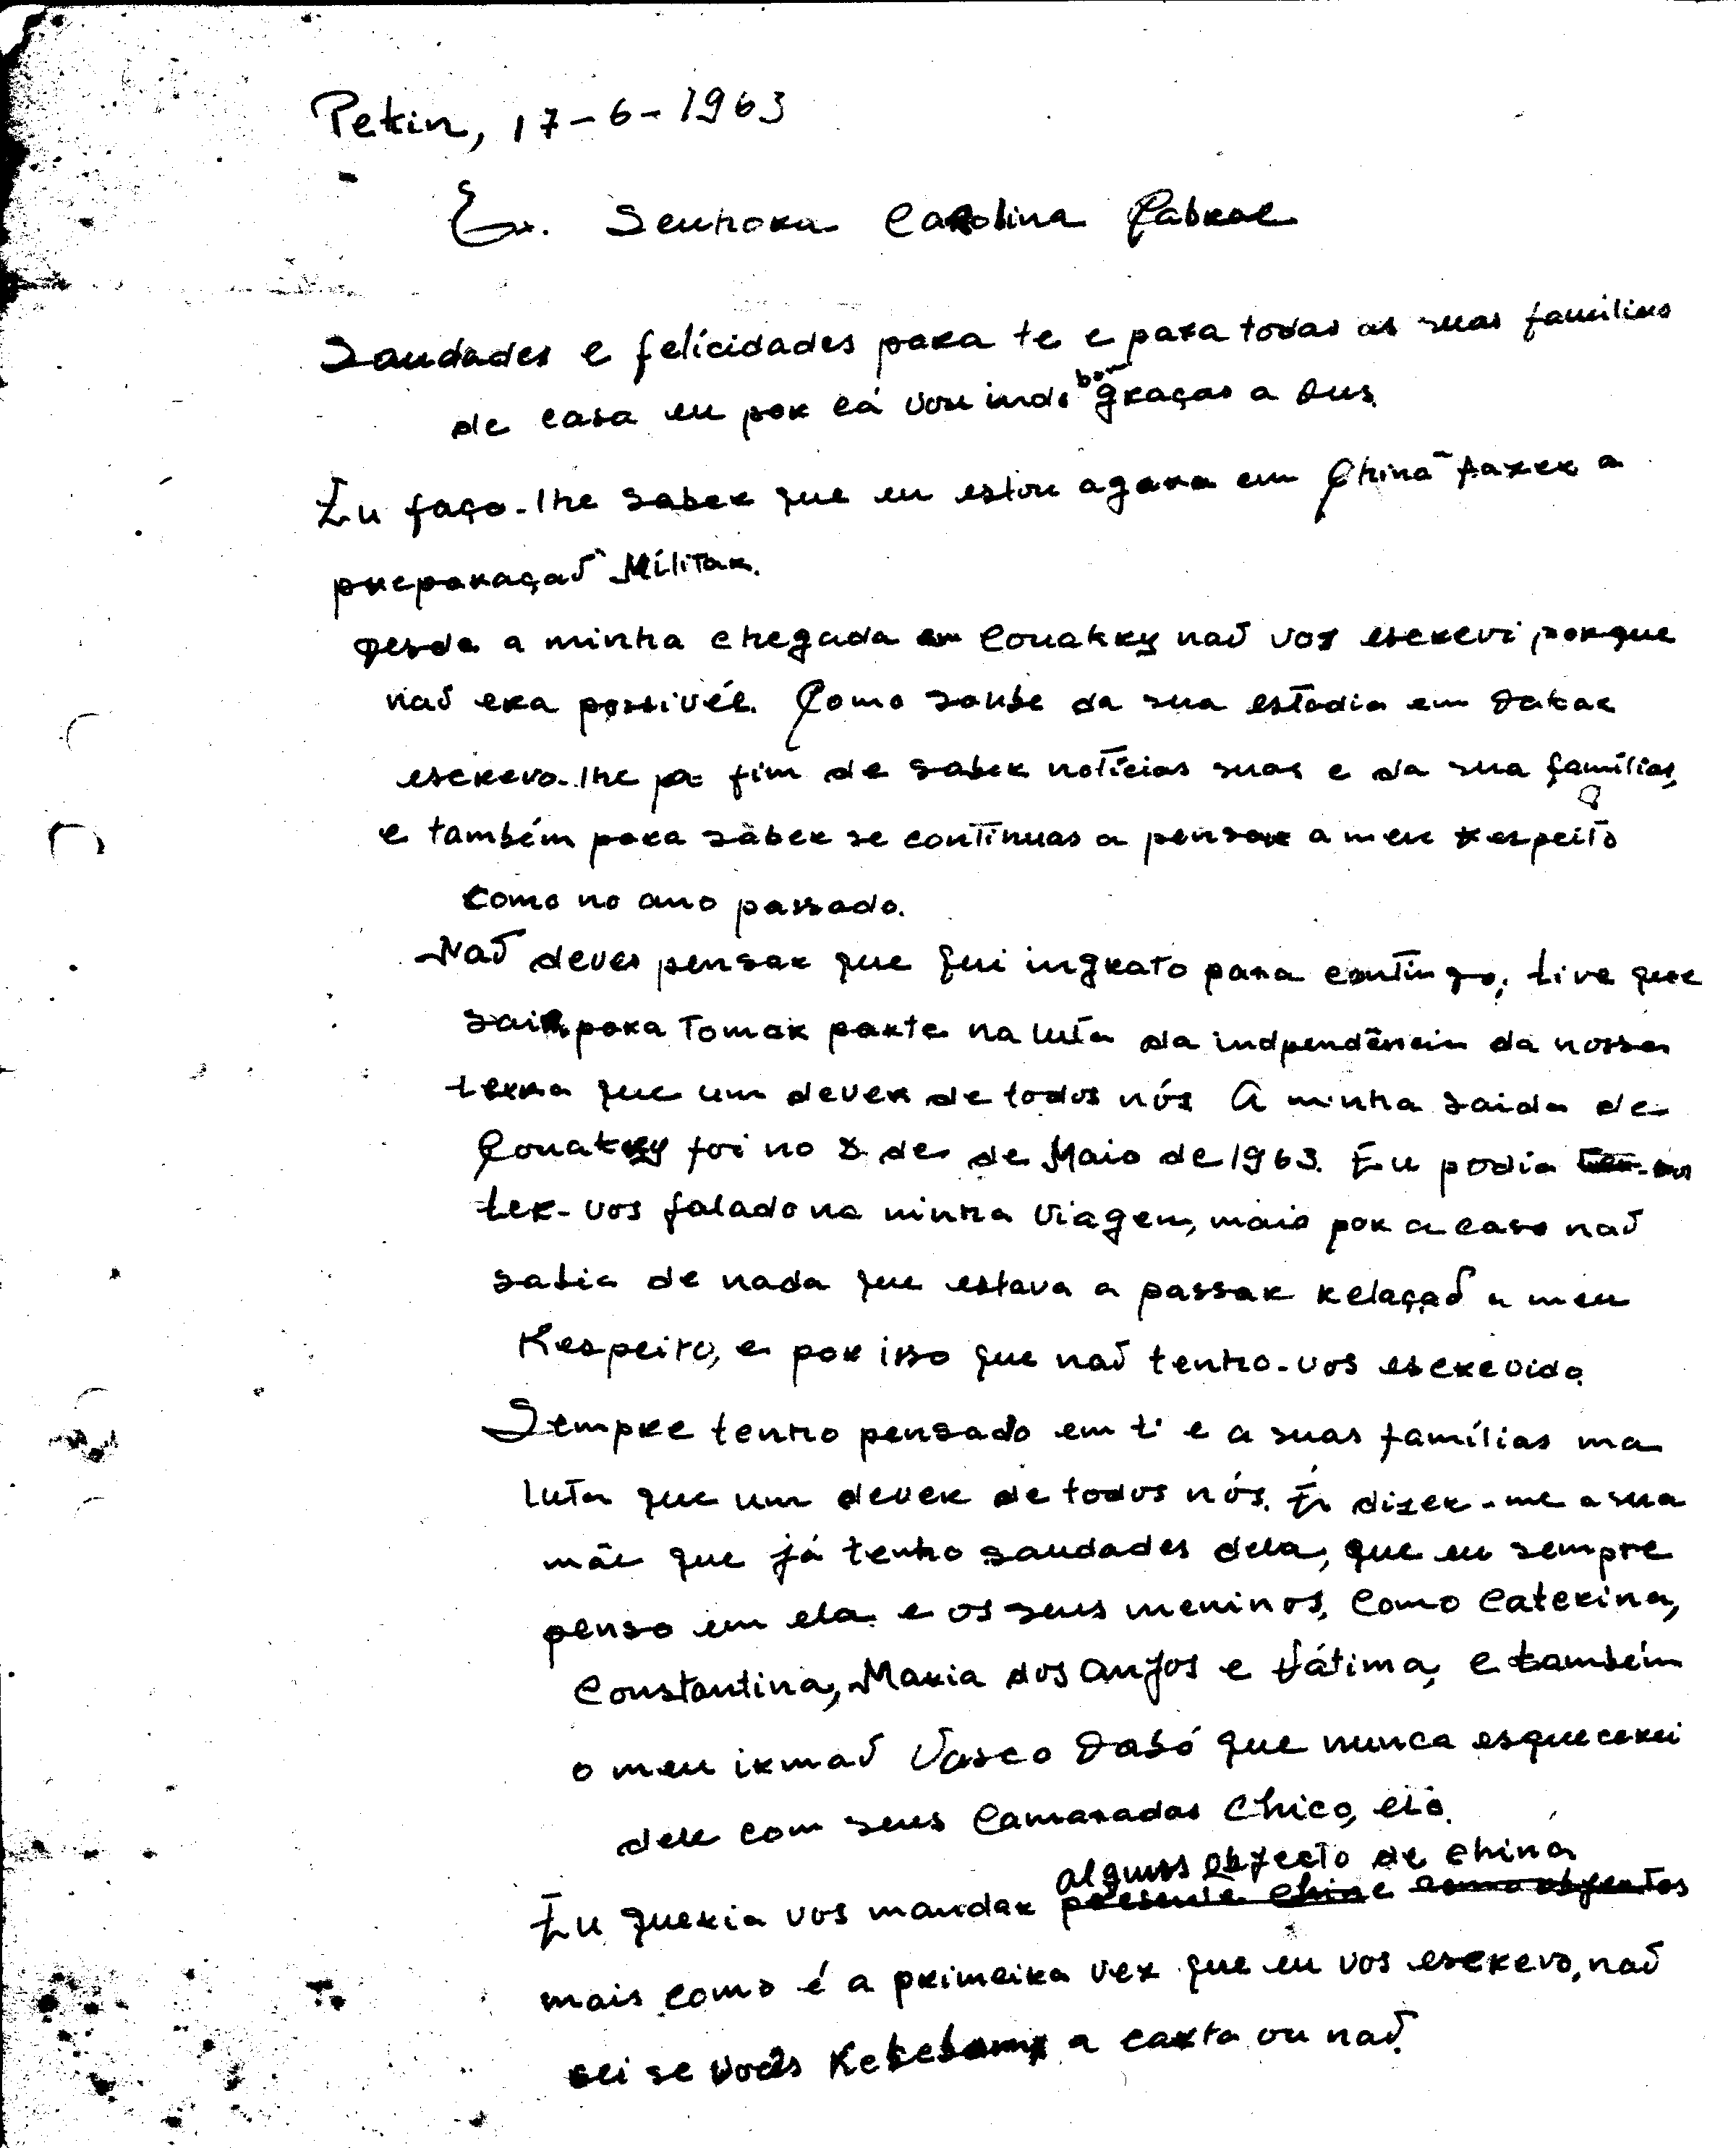 Pekin, 17-6-1963
Ex. Senhora Carolina Cabral
Saudades e felicidades para te e para todas as suas famílias
de casa eu por cá vou indo bom graças a Dus.
Eu faço-lhe saber que eu estou agora em China fazer a
preparação Militar.
desda a minha chegada em Conakry não vos escrevi, porque
não era possivél. Como soube da sua estadia em Dakar
escrevo-lhe pa fim de saber notícias suas e da sua famílias,
e também para sàber se contínuas a pensar a meu respeito
como no ano passado.
Não deves pensar que fui ingrato para contingo, tive que
sair para Tomar parte na luta da indpendência da nossa
terra que um dever de todos nós A minha saida de
Conakry foi no 8 de de Maio de 1963. Eu podia
ter-vos falado na ninha viagen, mais por a caso não
sabia de nada que estava a passar relação a meu
Respeito, e por isso que não tenho-vos escrevido.
Sempre tenho pensado em ti e a suas famílias ma
luta que um dever de todos nós. É dizer-me a sua
mãe que já tenho saudades dela, que eu sempre
penso em ela e os seus meninos, como Caterina,
Constantina, Maria dos Anjos e Fátima, e também
o meu irmão Vasco Dabó que nunca esquecerei
dele com seus Camaradas Chico, etò.
alguns objecto de china
Eu queria vos mandar presente chine como objectos
mais como é a primeira vez que eu vos escrevo, não
sei se vocês a carta ou não.